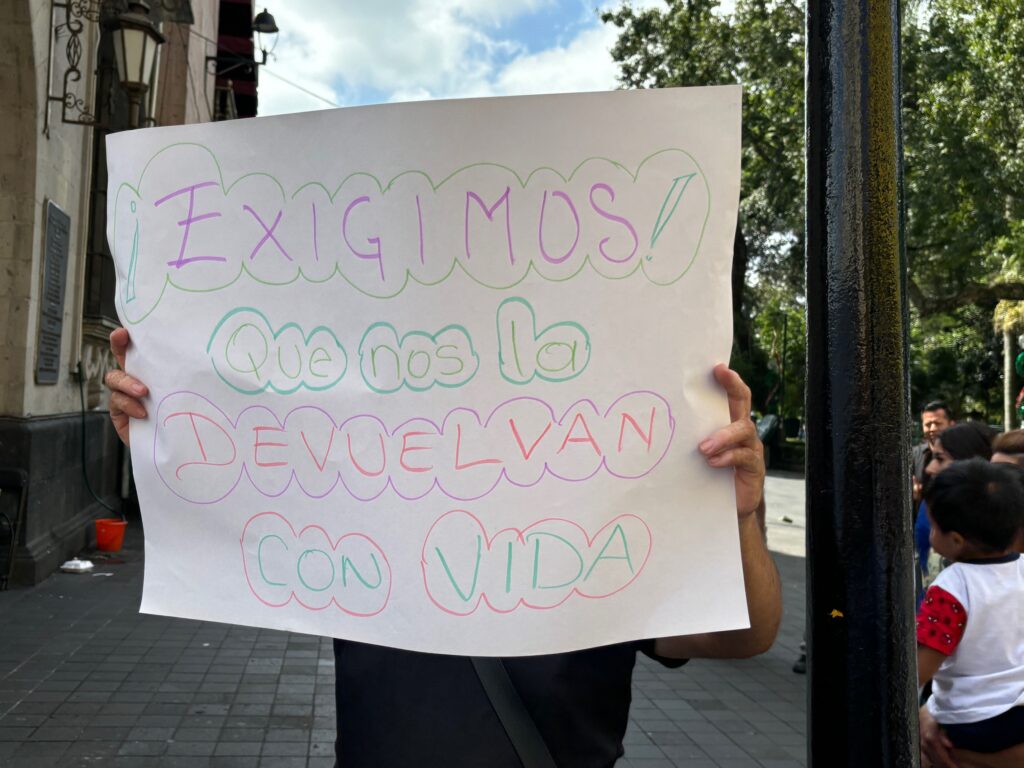 ¡EXIGIMOS!
Que nos la
DEVUELVAN
CON VIDA